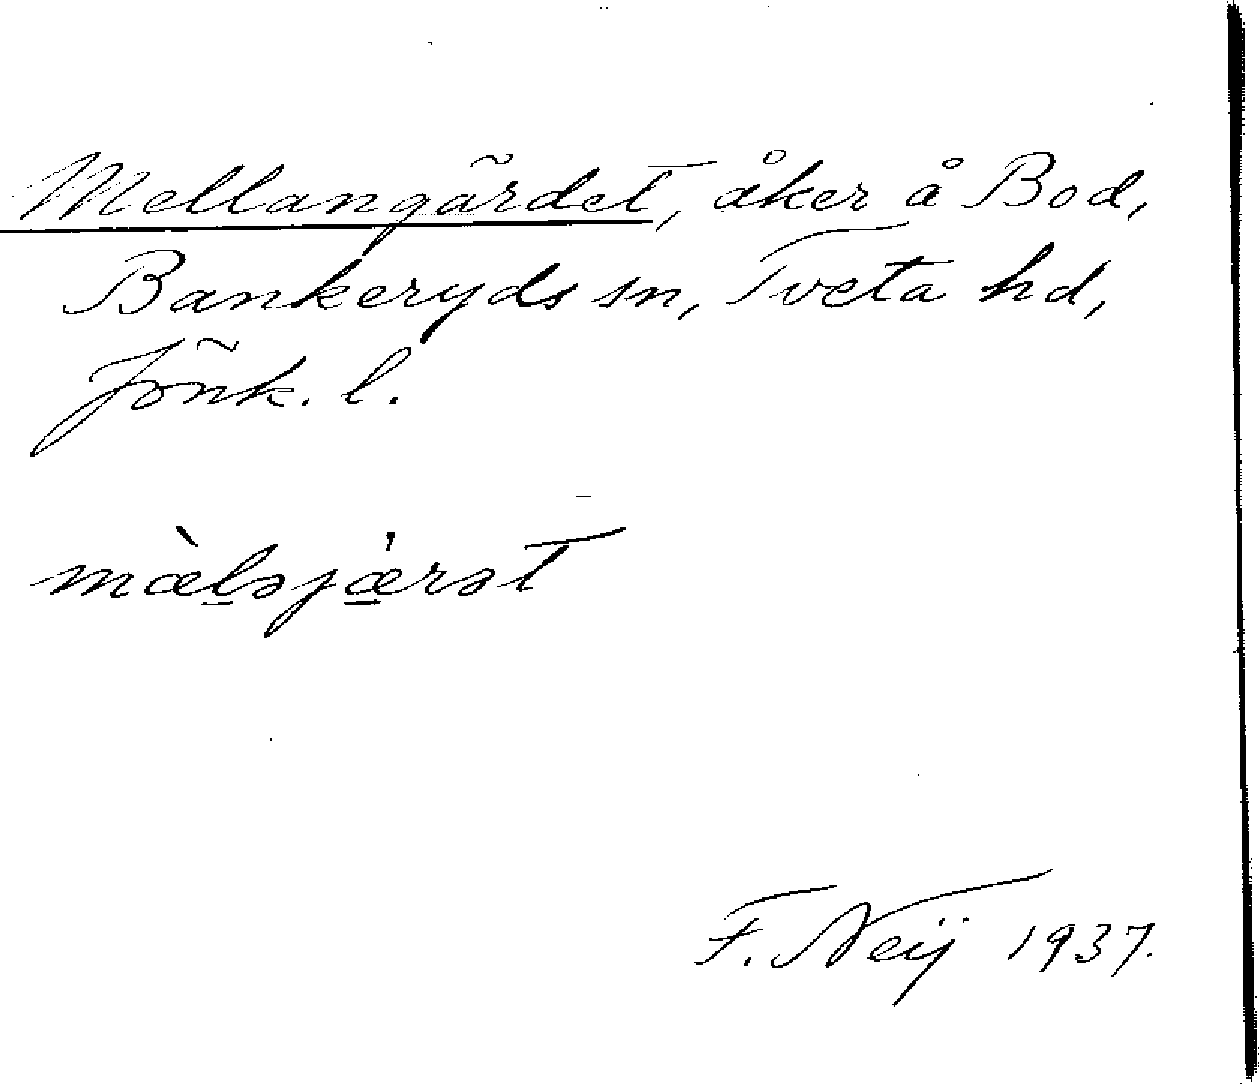 Mellangärdet, åker å Bod,
Bankeryds sn, Tveta hd,
Jönk. l.
mæ̀l̠əjæ̠̍rət
F. Neij 1937.